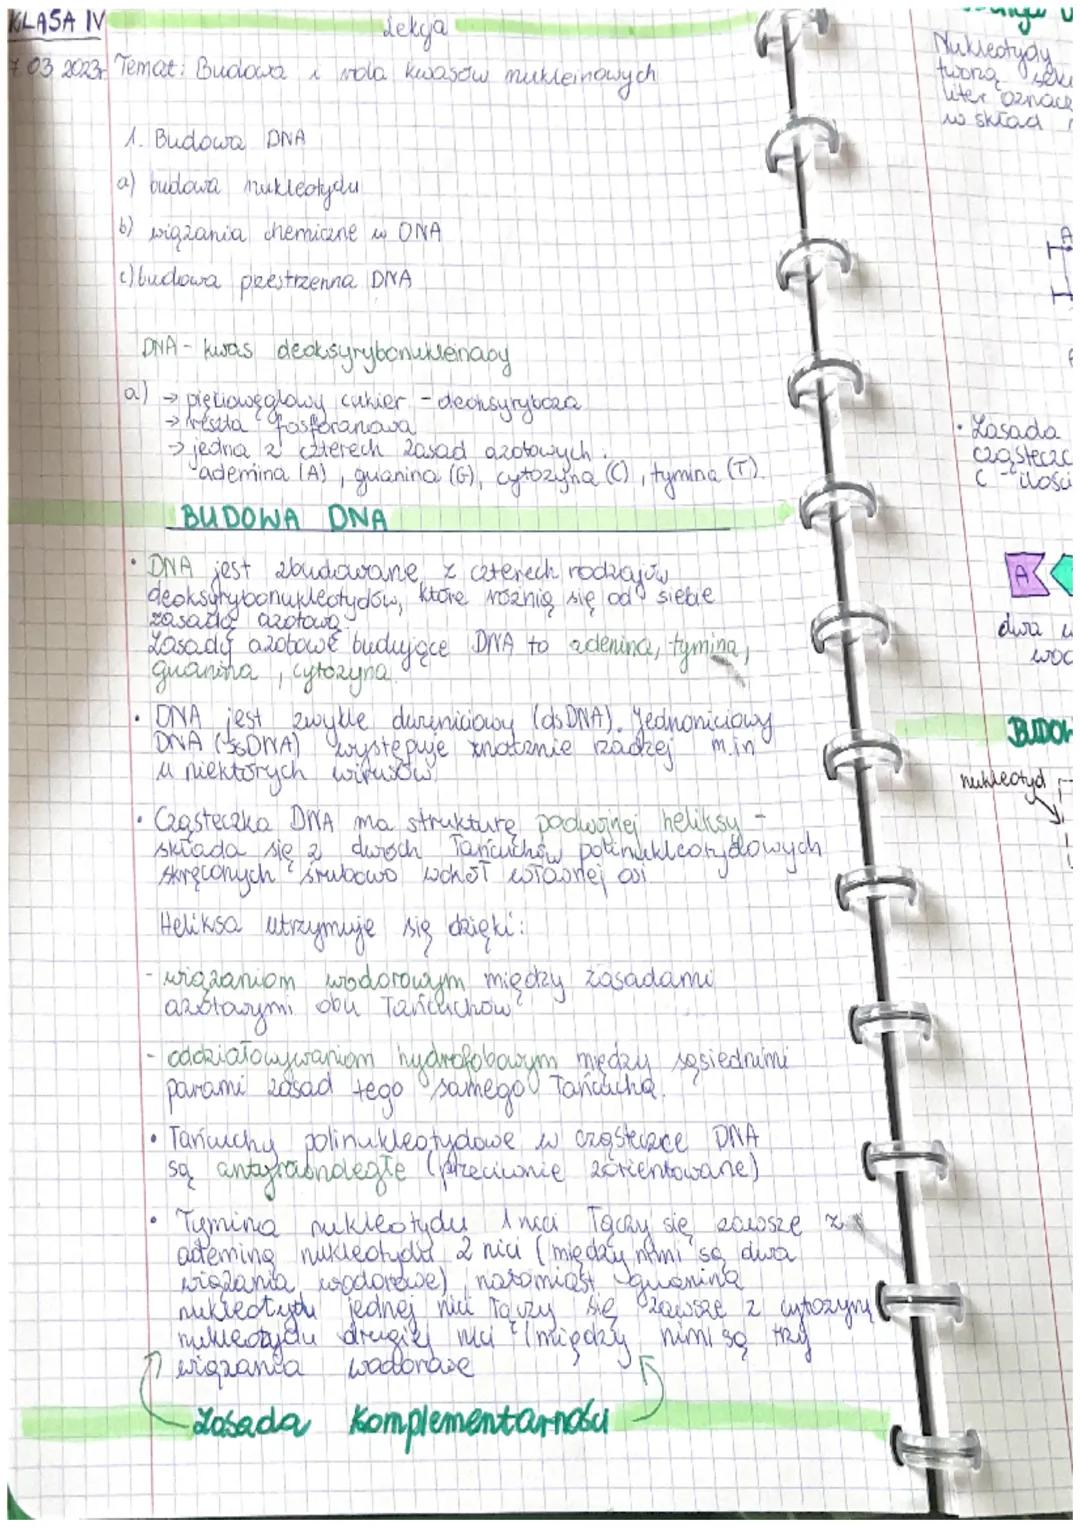 KLASA IV
Lekcja
7.03 2023r Temat: Budowa i rola kwasów nukleinowych
1. Budowa DNA
a) budowa nukleotydu
b) wiązania chemiczne w DNA
c) budowa przestrzenna DNA
DNA - kwas deoksyrybonukleinowy
a) → pięciowęglowy cukier - deoksyryboza
→ reszta fosforanowa
→ jedna z czterech zasad azotowych.
ademina (A), guanina (G), cytozyna (C), tymina (T).
BUDOWA DNA
• DNA jest zbudowane z czterech rodzajów
deoksyrybonukleotydów, które różnią się od siebie
zasadą azotową
Zasady azotowe budujące DNA to adenina, tymina,
guanina, cytozyna.
• DNA jest zwykle dwuniciowy (dsDNA). Jednoniciowy
DNA (ssDNA) występuje znacznie rzadziej m.in
u niektórych wirusów.
• Cząsteczka DNA ma strukturę podwójnej heliksy -
składa się z dwóch łańcuchów polinukleotydowych
skręconych śrubowo wokół własnej osi
Heliksa utrzymuje się dzięki:
- wiązaniom wodorowym między zasadami
azotowymi obu łańcuchów
- oddziaływaniom hydrofobowym między sąsiednimi
parami zasad tego samego łańcucha.
• Łańcuchy polinukleotydowe w cząsteczce DNA
są antyrównoległe (przeciwnie zorientowane)
• Tymina nukleotydu 1 nici łączy się zawsze z
ademiną nukleotydu 2 nici (między nimi są dwa
wiązania wodorowe), natomiast guanina
nukleotydu jednej nici łączy się zawsze z cytozyną
nukleotydu drugiej nici (między nimi są trzy
wiązania wodorowe
Zasada Komplementarności
Nukleotydy
tworzą
liter oznacz
w skład
A
• Zasada
cząstecz
C - ilości
A
dwa w
wod
BUDOW
nukleotyd